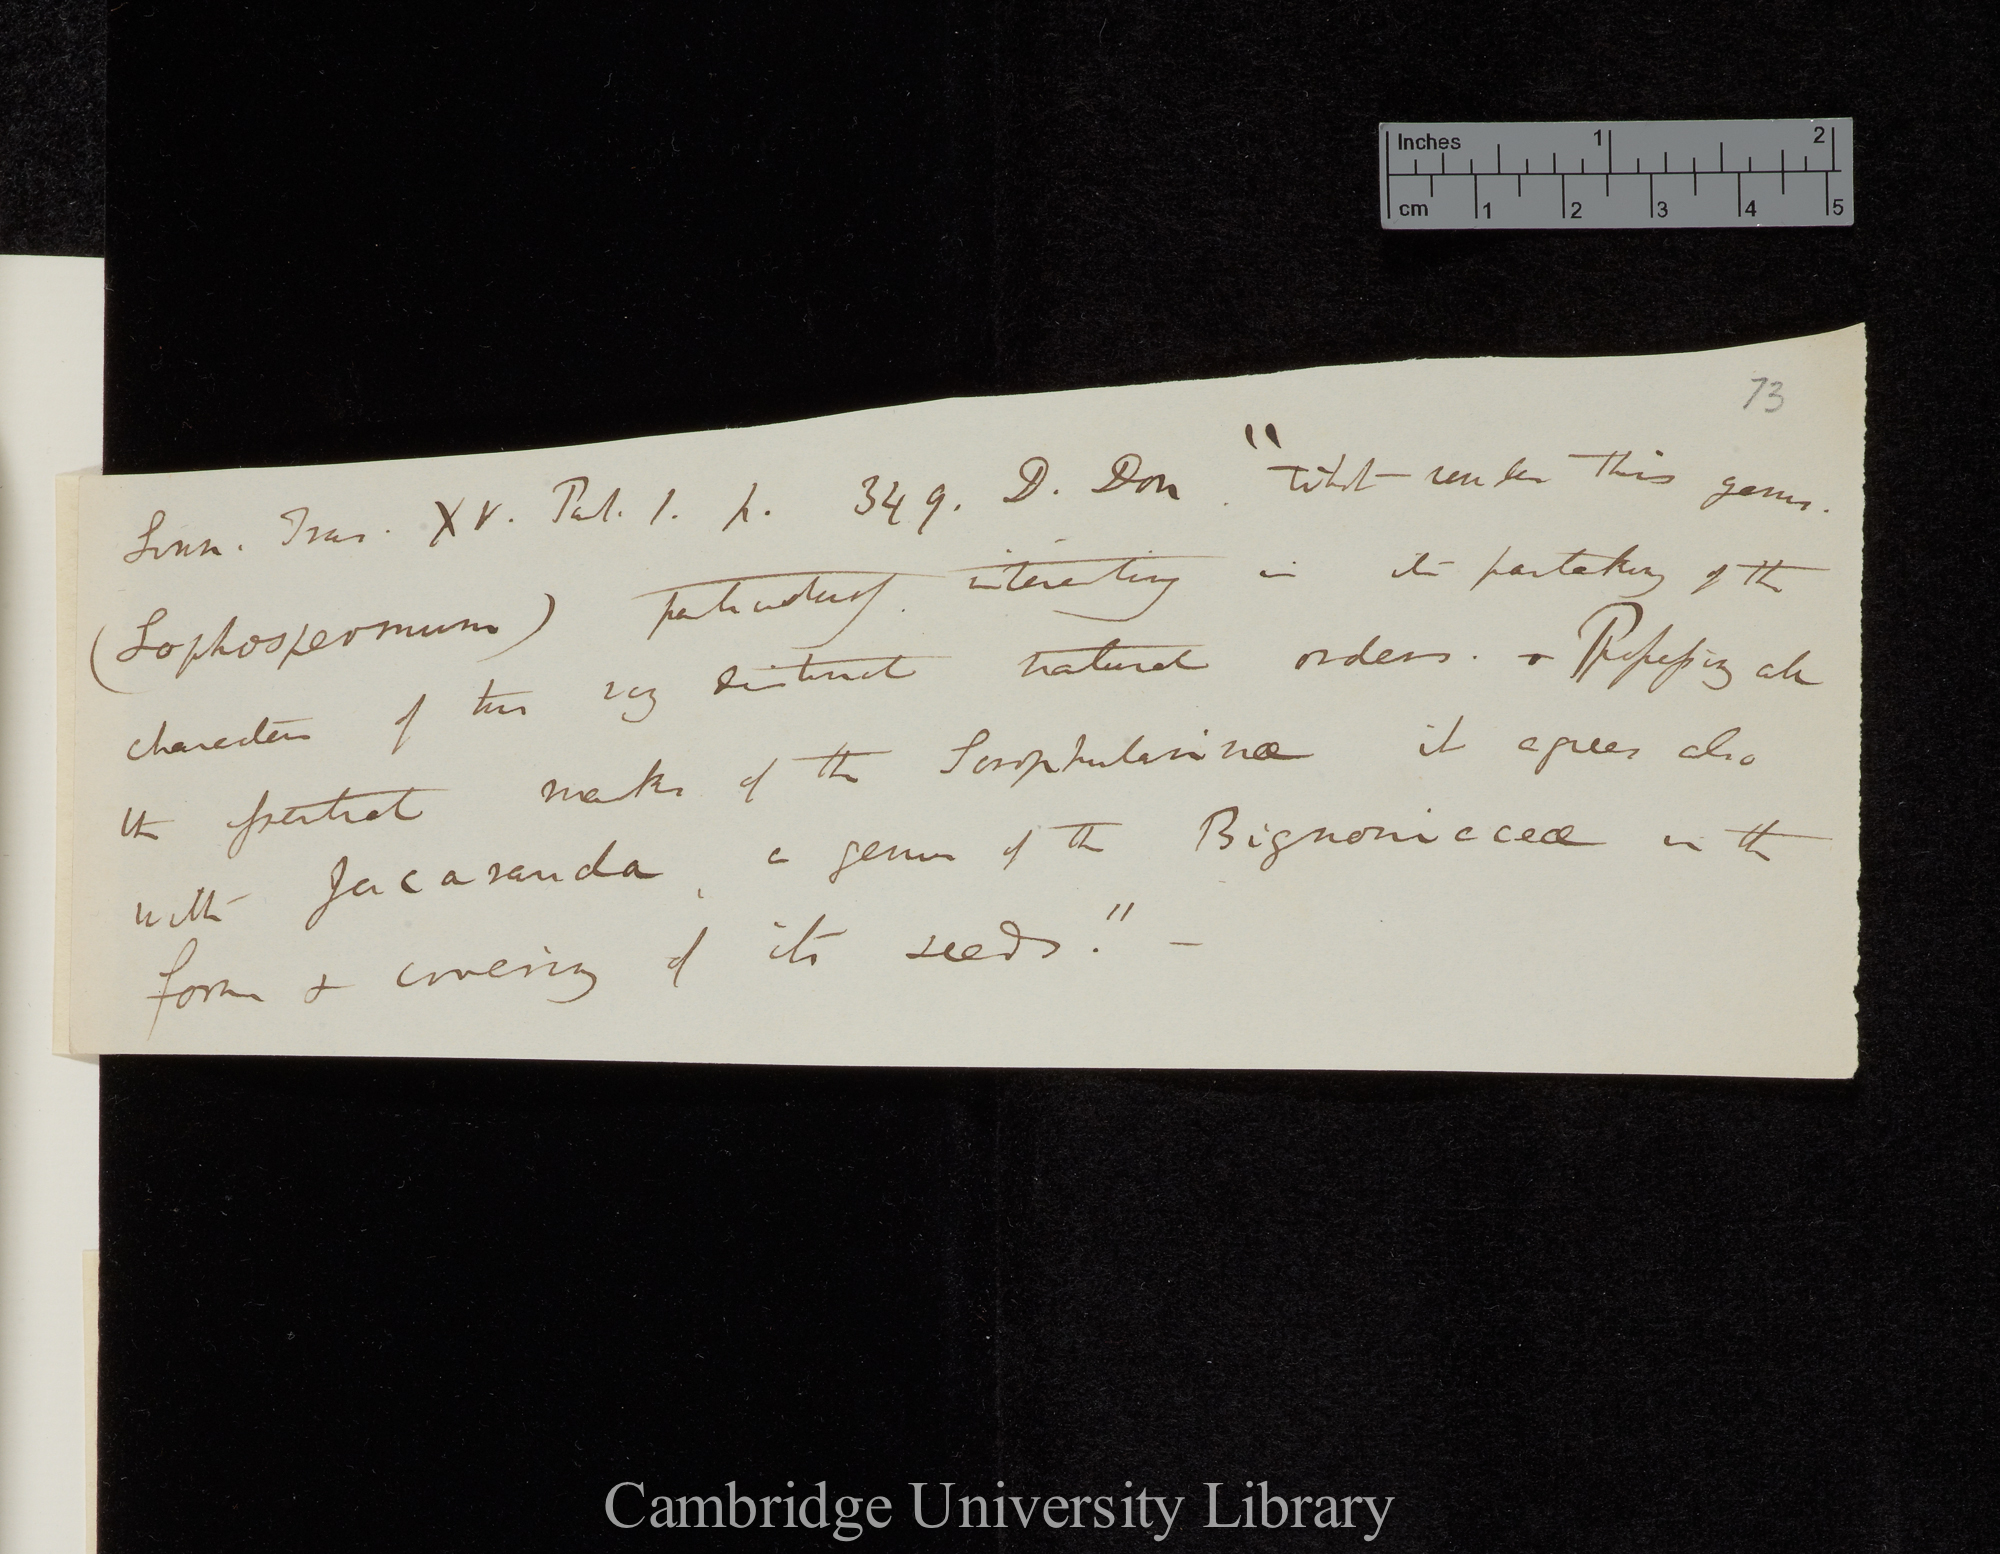 Inches 1 2
cm 1 2 3 4 5
73
Linn. Trans. XV. Part. 1. p. 349. D. Don. "What render this genus.
(Lophospermum) particularly interesting in its partaking of the
characters of two very distinct natural orders. & Possessing all
the essential marks of the Scrophularinæ it agrees also
with Jacaranda, a genus of the Bignoniaceæ in the
form & covering of its seeds." —
Cambridge University Library